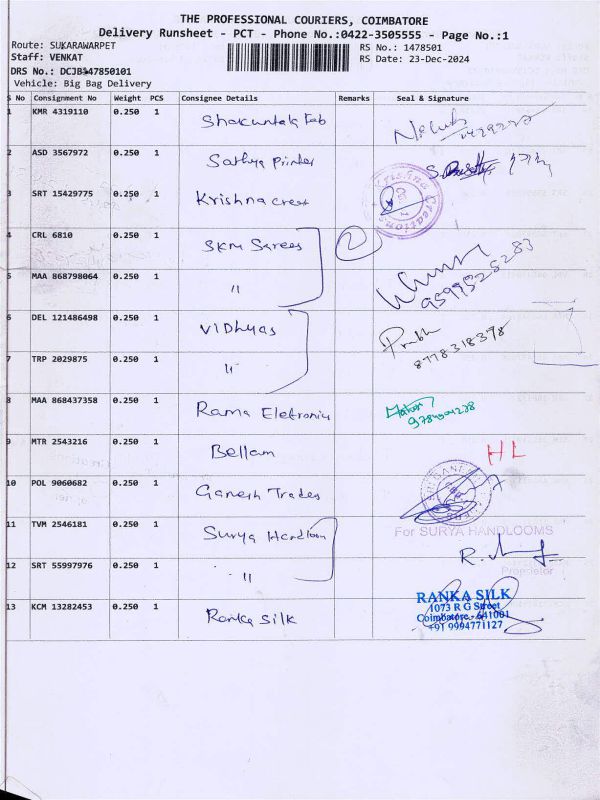 THE PROFESSIONAL COURIERS, COIMBATORE
Delivery Runsheet - PCT - Phone No.:0422-3505555 - Page No.:1
Route: SUKARAWARPET
Staff: VENKAT
DRS No.: DCJB147850101
Vehicle: Big Bag Delivery
RS No.: 1478501
RS Date: 23-Dec-2024
S No Consignment No Weight PCS Consignee Details Remarks Seal & Signature
1 KMR 4319110 0.250 1 Shakuntala Fab
2 ASD 3567972 0.250 1 Sathya Printer
3 SRT 15429775 0.250 1 Krishna crest
Krishna Creations
4 CRL 6810 0.250 1 SKM Sarees 2
5 MAA 868798064 0.250 1 "
9599525283
6 DEL 121486498 0.250 1 VIDhyas
Prabhu
7 TRP 2029875 0.250 1 "
8778318378
8 MAA 868437358 0.250 1 Rama Eletronics
9 MTR 2543216 0.250 1 Bellam HL
10 POL 9060682 0.250 1 Ganesh Trades
11 TVM 2546181 0.250 1 Surya Handloom
For SURYA HANDLOOMS
12 SRT 55997976 0.250 1 "
Proprietor
13 KCM 13282453 0.250 1 Ranka Silk
RANKA SILK
1073 R G Street
Coimbatore - 641001
+91 9994771127